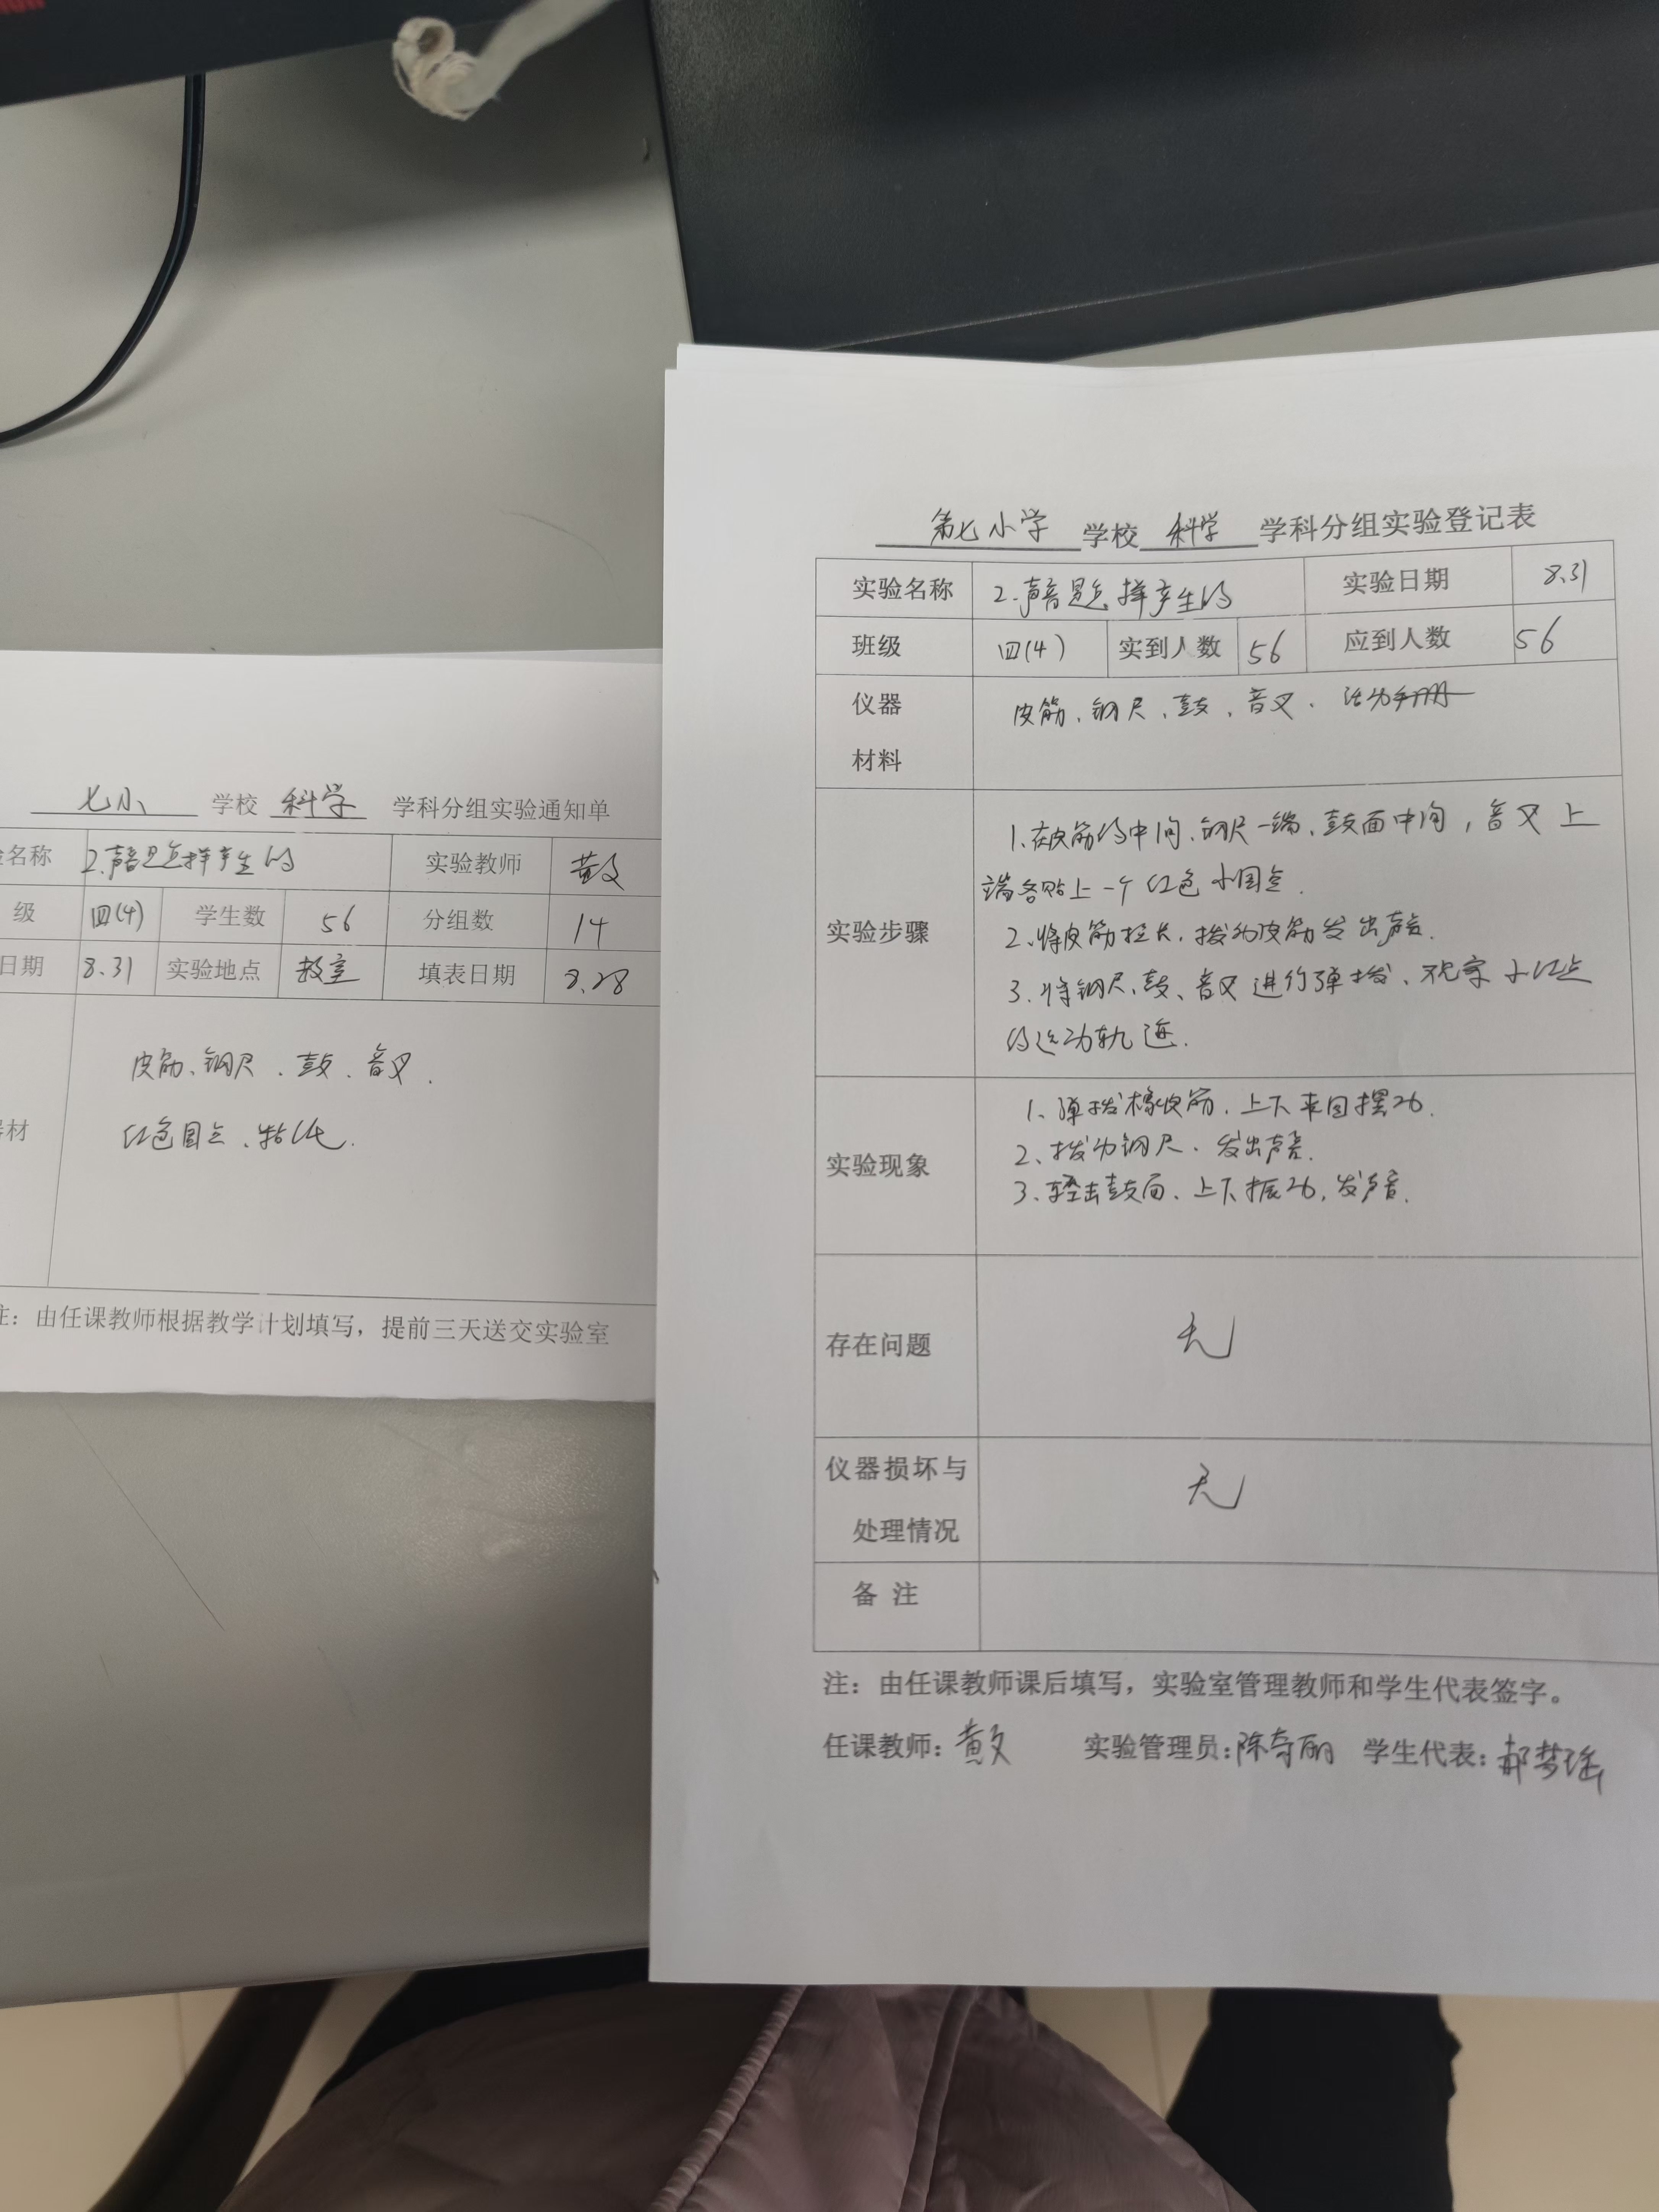 七小 学校 科学 学科分组实验通知单
名称 2.声音是怎样产生的 实验教师 黄文
级 四(4) 学生数 56 分组数 14
日期 8.31 实验地点 教室 填表日期 8.28
材 皮筋、钢尺、鼓、音叉.
红色圆点、
注：由任课教师根据教学计划填写，提前三天送交实验室
第七小学 学校 科学 学科分组实验登记表
实验名称 2.声音是怎样产生的 实验日期 8.31
班级 四(4) 实到人数 56 应到人数 56
仪器 皮筋、钢尺、鼓、音叉.
材料
实验步骤
1、在皮筋的中间、钢尺一端、鼓面中间，音叉上
端各贴上一个红色小圆点.
2、将皮筋拉长，拨动皮筋发出声音.
3、将钢尺、鼓、音叉进行弹拨、观察小红点
的运动轨迹.
实验现象
1、弹拨橡皮筋，上下来回摆动.
2、拨动钢尺、发出声音.
3、轻击鼓面、上下振动，发声音.
存在问题 无
仪器损坏与 无
处理情况
备 注
注：由任课教师课后填写，实验室管理教师和学生代表签字。
任课教师：黄文 实验管理员：陈奇丽 学生代表：郝梦瑶